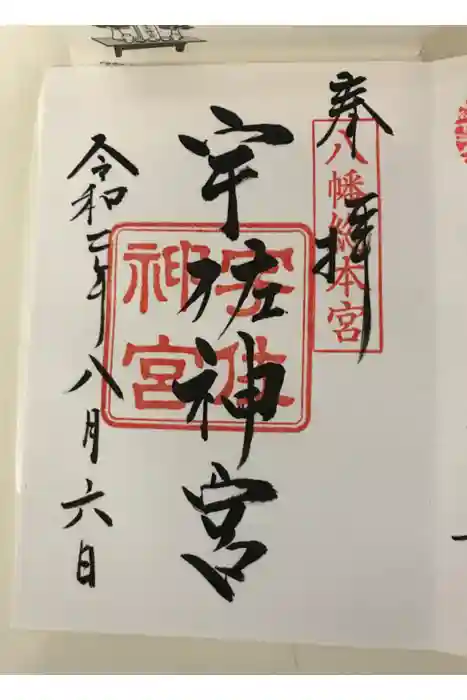 奉拝
八幡総本宮
宇佐神宮
宇佐神宮
令和二年八月六日